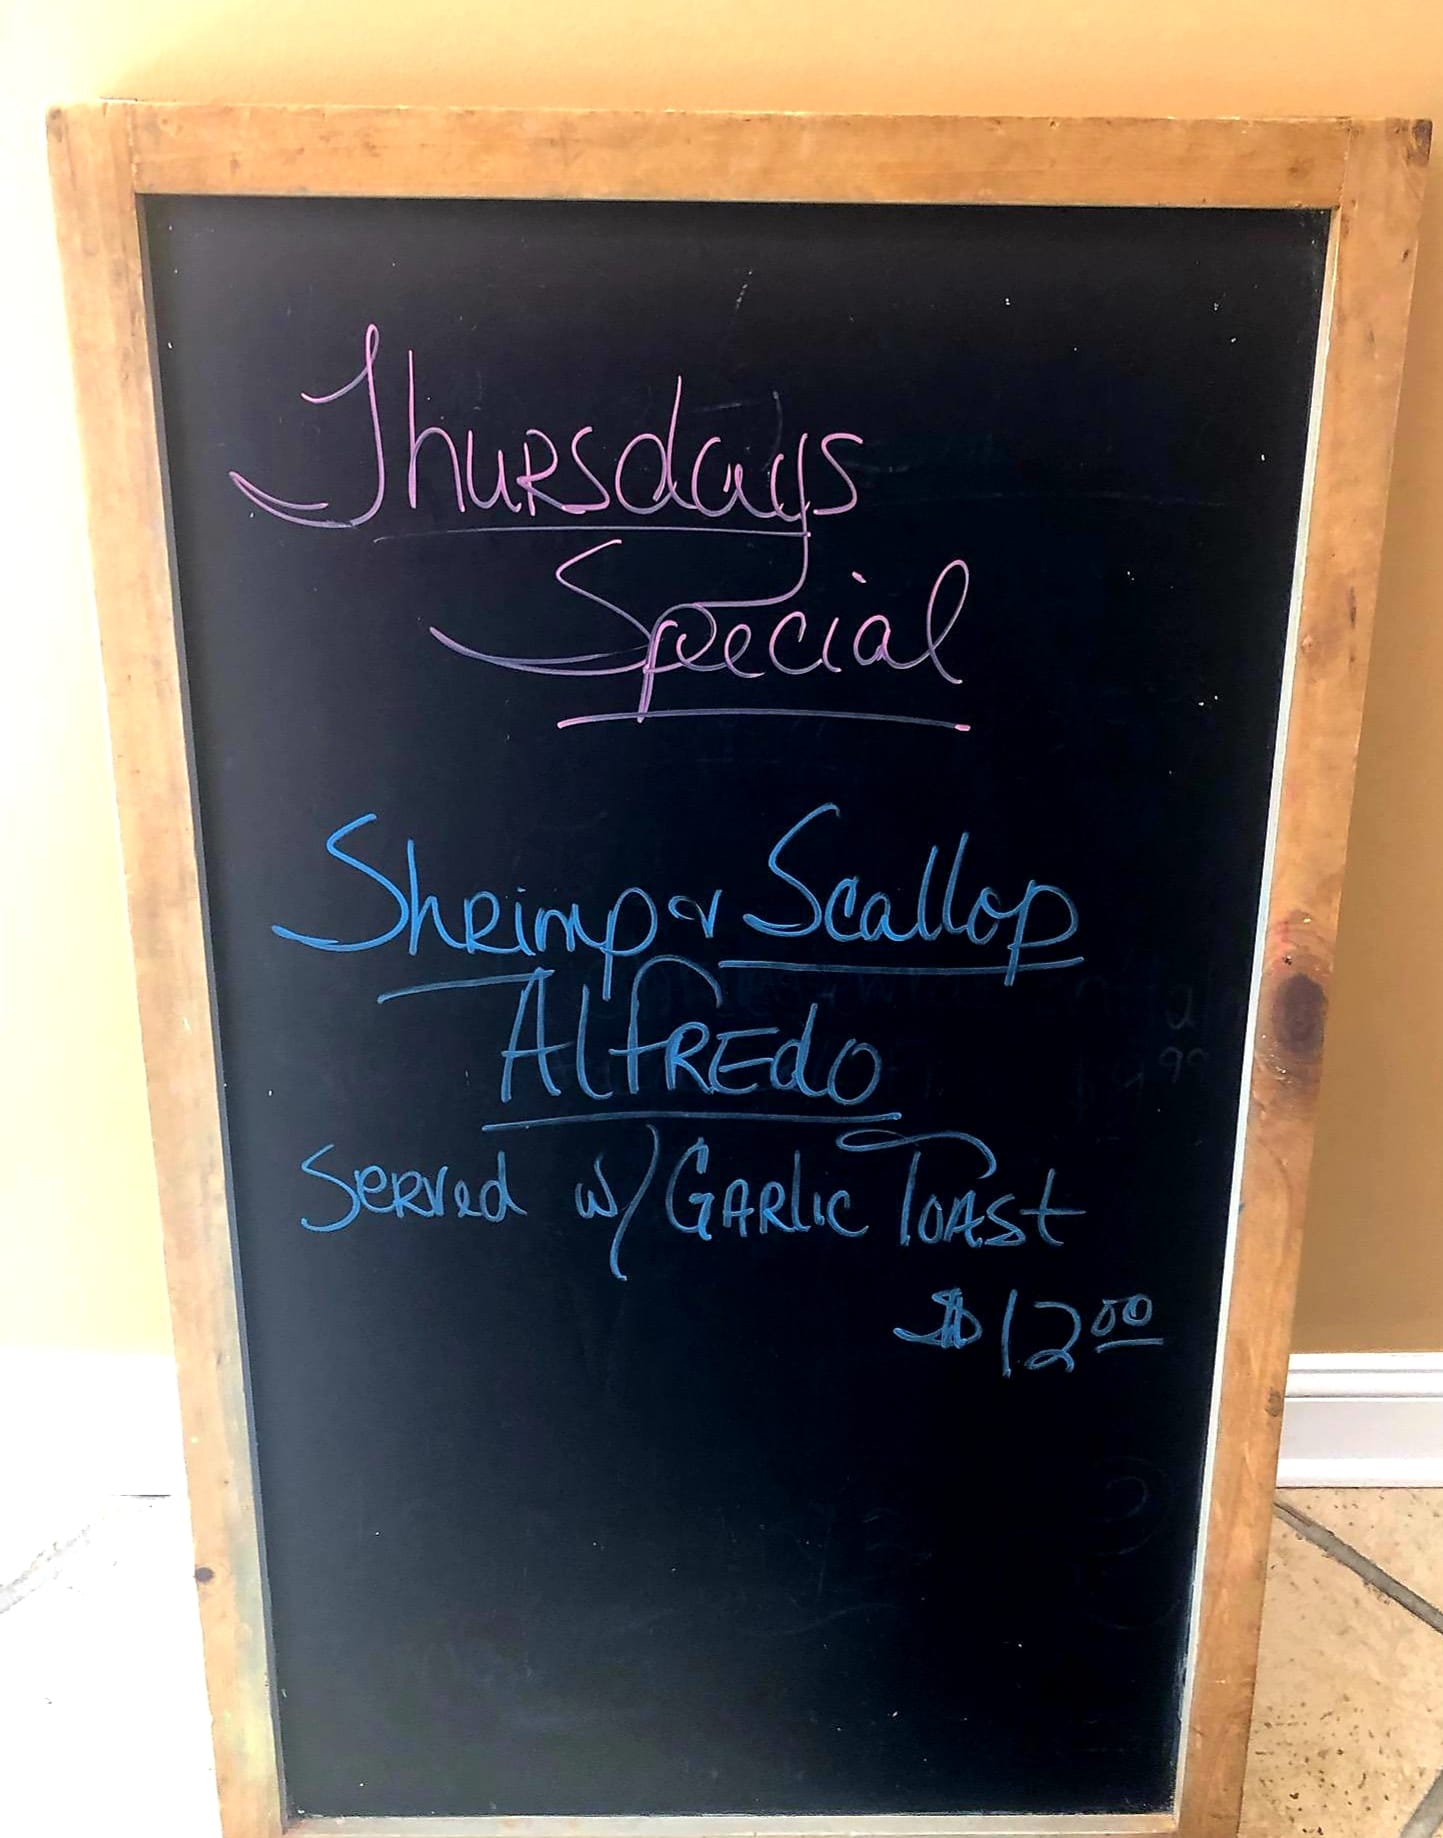 Thursdays
Special
Shrimp & Scallop
Alfredo
Served w/ Garlic Toast
$12.00